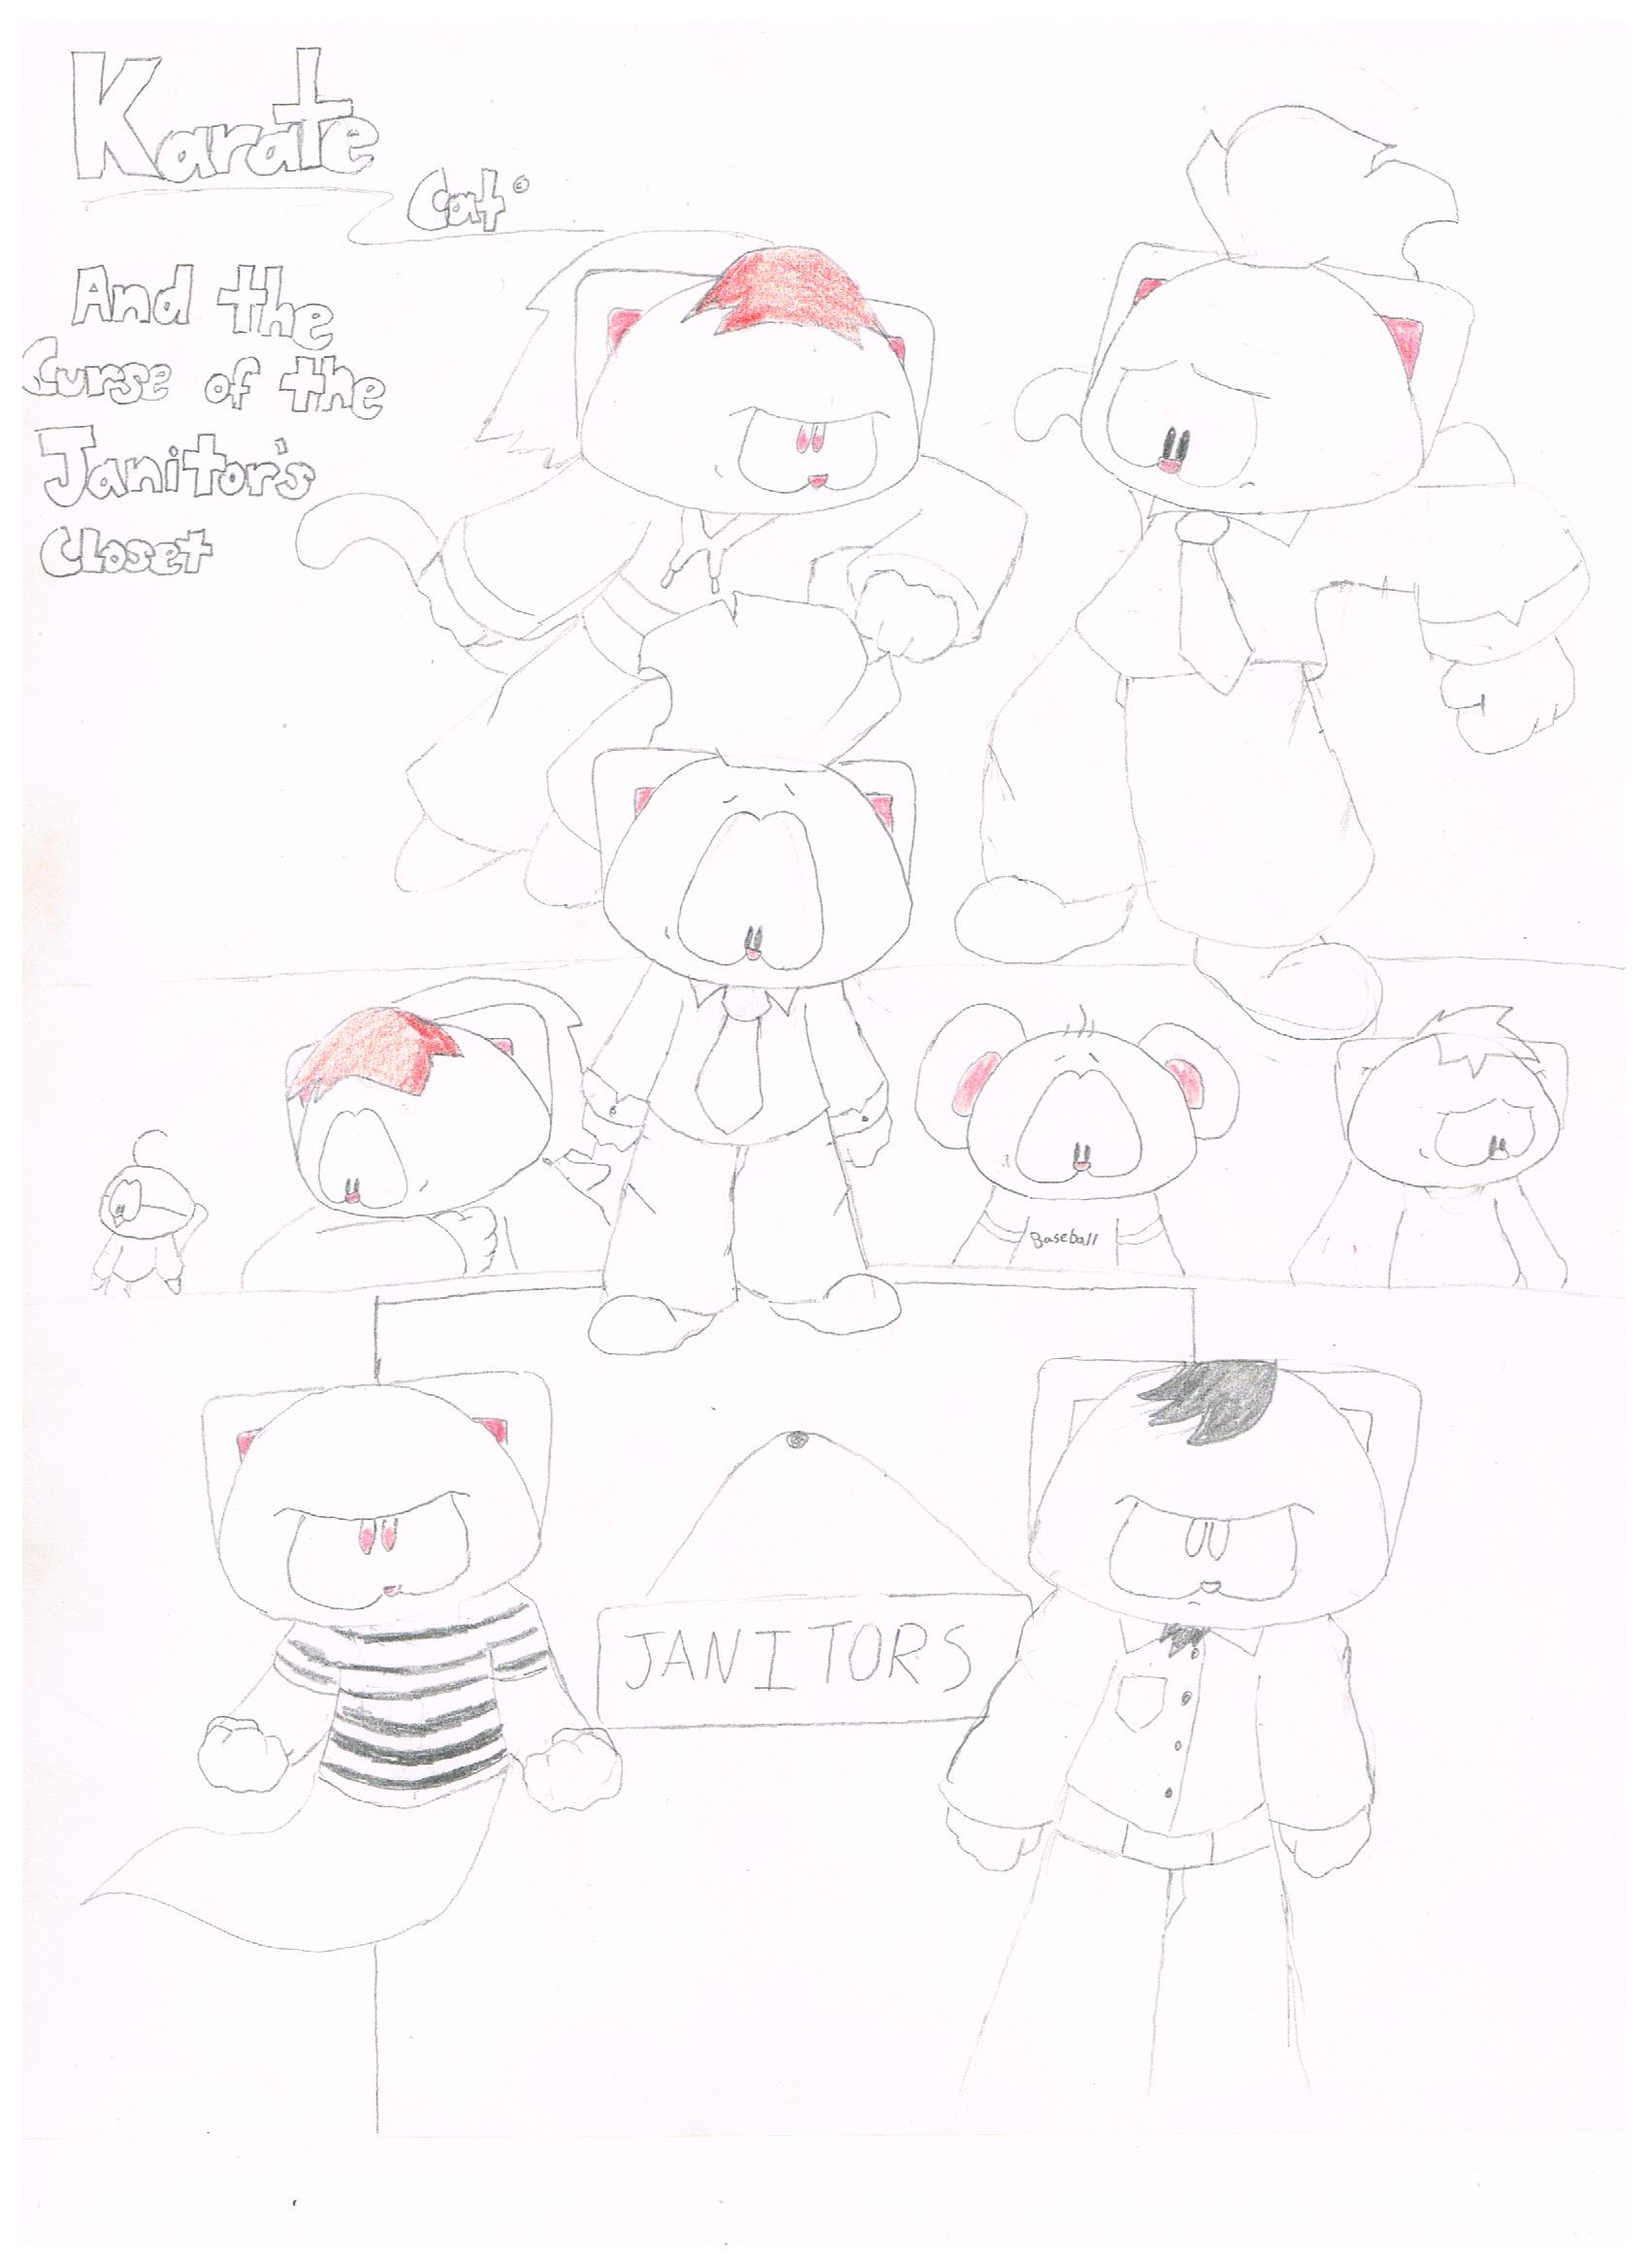 Karate
Cat
And the
Curse of the
Janitor's
Closet
Baseball
JANITORS